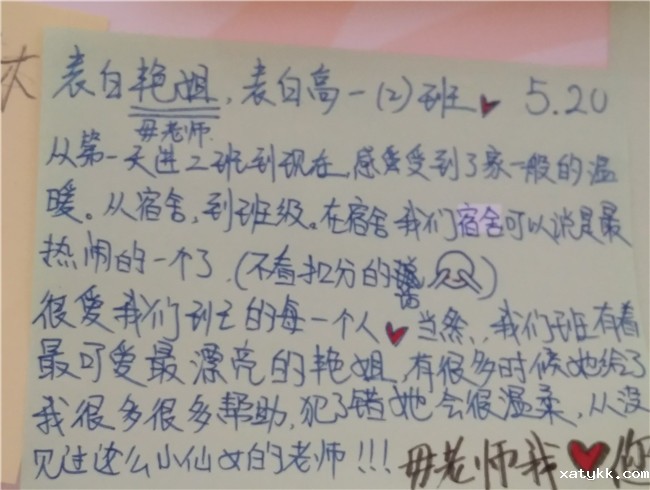 表白艳姐，表白高一(2)班 5.20
毋老师
从第一天进2班到现在，感受到了家一般的温
暖。从宿舍，到班级。在宿舍我们宿舍可以说是最
热闹的一个了.(不看扣分的话)
很爱我们班的每一个人 当然，我们班有着
最可爱最漂亮的艳姐，有很多时候她给了
我很多很多帮助，犯了错她会很温柔，从没
见过这么小仙女的老师!!! 毋老师我 您
xatykk.com